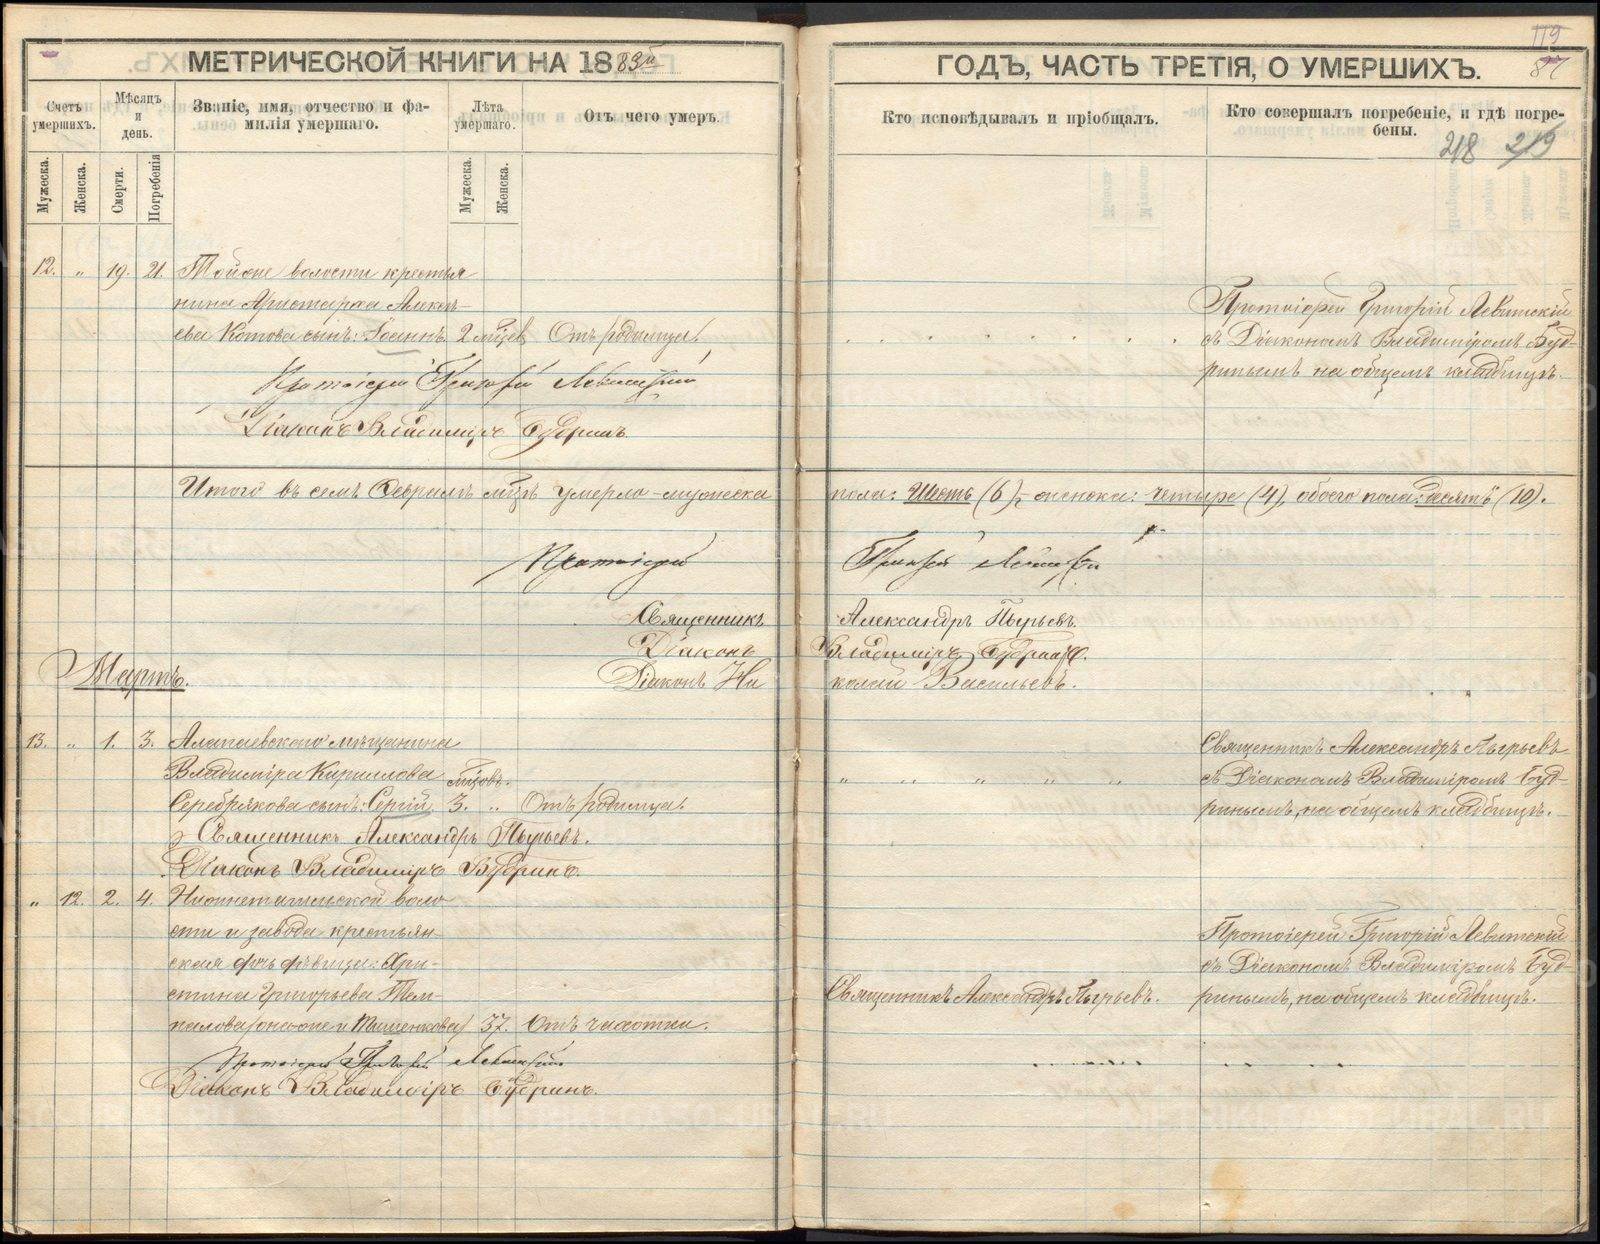 МЕТРИЧЕСКОЙ КНИГИ НА 1883й
ГОДЪ, ЧАСТЬ ТРЕТІЯ, О УМЕРШИХЪ.
119
87
Счетъ умершихъ.
Мѣсяцъ и день.
Званіе, имя, отчество и фа-
милія умершаго.
Лѣта умершаго.
Отъ чего умеръ.
Кто исповѣдывалъ и пріобщалъ.
Кто совершалъ погребеніе, и гдѣ погре-
бены.
218 219
Мужеска.
Женска.
Смерти.
Погребенія
Мужеска.
Женска.
12. " 19. 21. Тойже волости крестья
нина Аристарха Алексѣ-
ева Котова сынъ: Іоаннъ 2 мѣсец Отъ родимца.
Протоіерей Григорій Левитскій
Діаконъ Владиміръ Будринъ.
Протоіерей Григорій Левитскій
съ Діакономъ Владиміромъ Буд-
ринымъ на общемъ кладбищѣ.
Итого въ семъ Февралѣ мѣцѣ умерло - мужеска пола: Шесть (6), женска: четыре (4), обоего пола: десять (10).
Протоіерей Григорій Левитскій
Священникъ Александръ Пырьевъ.
Діаконъ Владиміръ Будринъ.
Діаконъ Ни колай Васильевъ.
Мартъ.
13. " 1. 3. Алапаевскаго мѣщанина
Владиміра Кириллова мѣцовъ.
Серебрякова сынъ: Сергій 3. " Отъ родимца.
Священникъ Александръ Пырьевъ.
Діаконъ Владиміръ Будринъ.
" " " " "
Священникъ Александръ Пырьевъ
съ Діакономъ Владиміромъ Буд-
ринымъ, на общемъ кладбищѣ.
" 12. 2. 4. Нижнетагильской воло
сти и завода крестьян-
ская дочь дѣвица: Хри-
стина Григорьева Тем-
палова (она же и Тишенкова) 37. Отъ чахотки.
Протоіерей Григорій Левитскій
Діаконъ Владиміръ Будринъ.
Священникъ Александръ Пырьевъ.
Протоіерей Григорій Левитскій
съ Діакономъ Владиміромъ Буд-
ринымъ, на общемъ кладбищѣ.